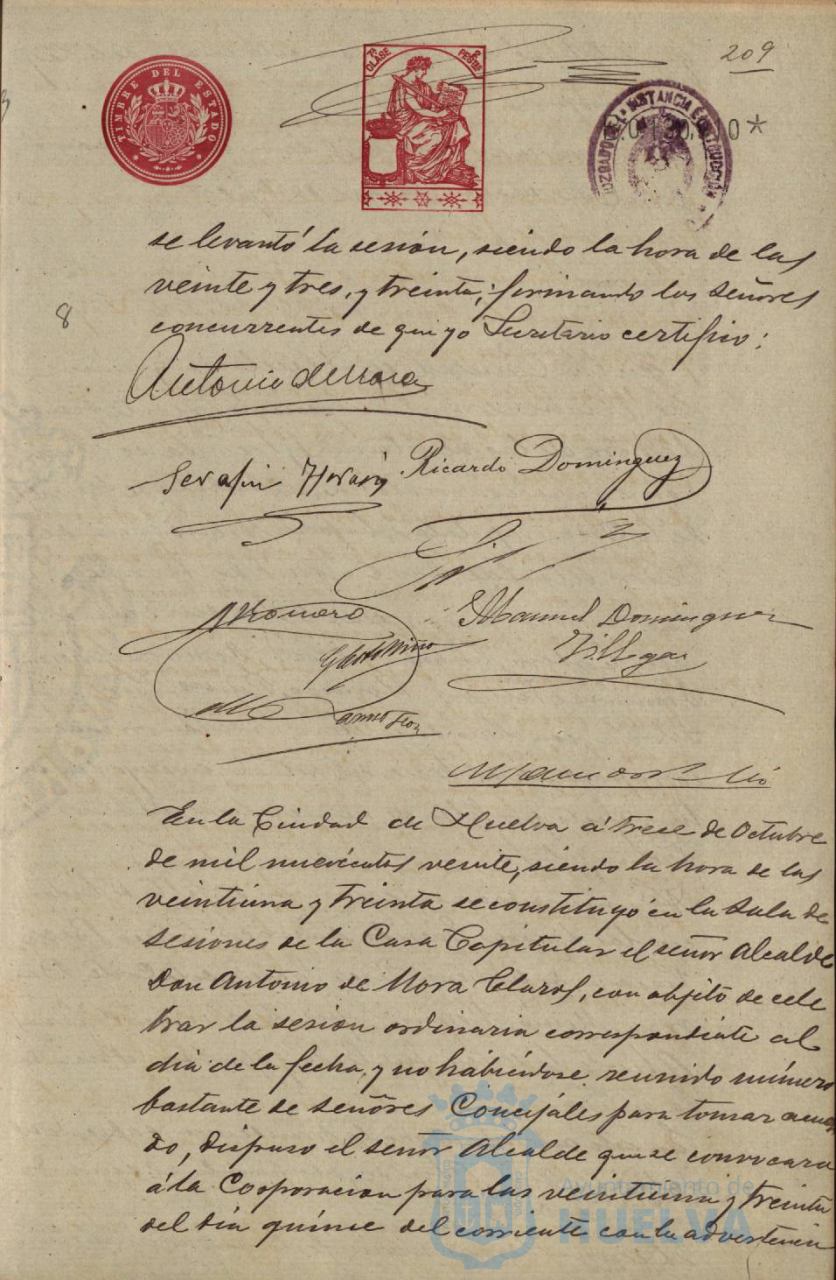 209
TIMBRE DEL ESTADO
7ª CLASE PESETA
JUZGADO DE 1ª INSTANCIA E INSTRUCCION
se levantó la sesión, siendo la hora de las
veinte y tres, y treinta, firmando los señores
8
concurrentes de que yo Secretario certifico:
Antonio de Mora
Serafin Ricardo Dominguez
Manuel Dominguez
Villegas
En la Ciudad de Huelva á trese de Octubre
de mil nuevecientos veinte, siendo la hora de las
veintiuna y treinta se constituyó en la Sala de
sesiones de la Casa Capitular el señor Alcalde
Don Antonio de Mora Claros, con objeto de cele
brar la sesion ordinaria correspondiente al
dia de la fecha, y no habiéndose reunido número
bastante de señores Concejales para tomar acuer
do, dispuso el señor Alcalde que se convocara
á la Corporacion para las veintiuna y treinta
del dia quince del corriente con la advertencia
Ayuntamiento de
HUELVA